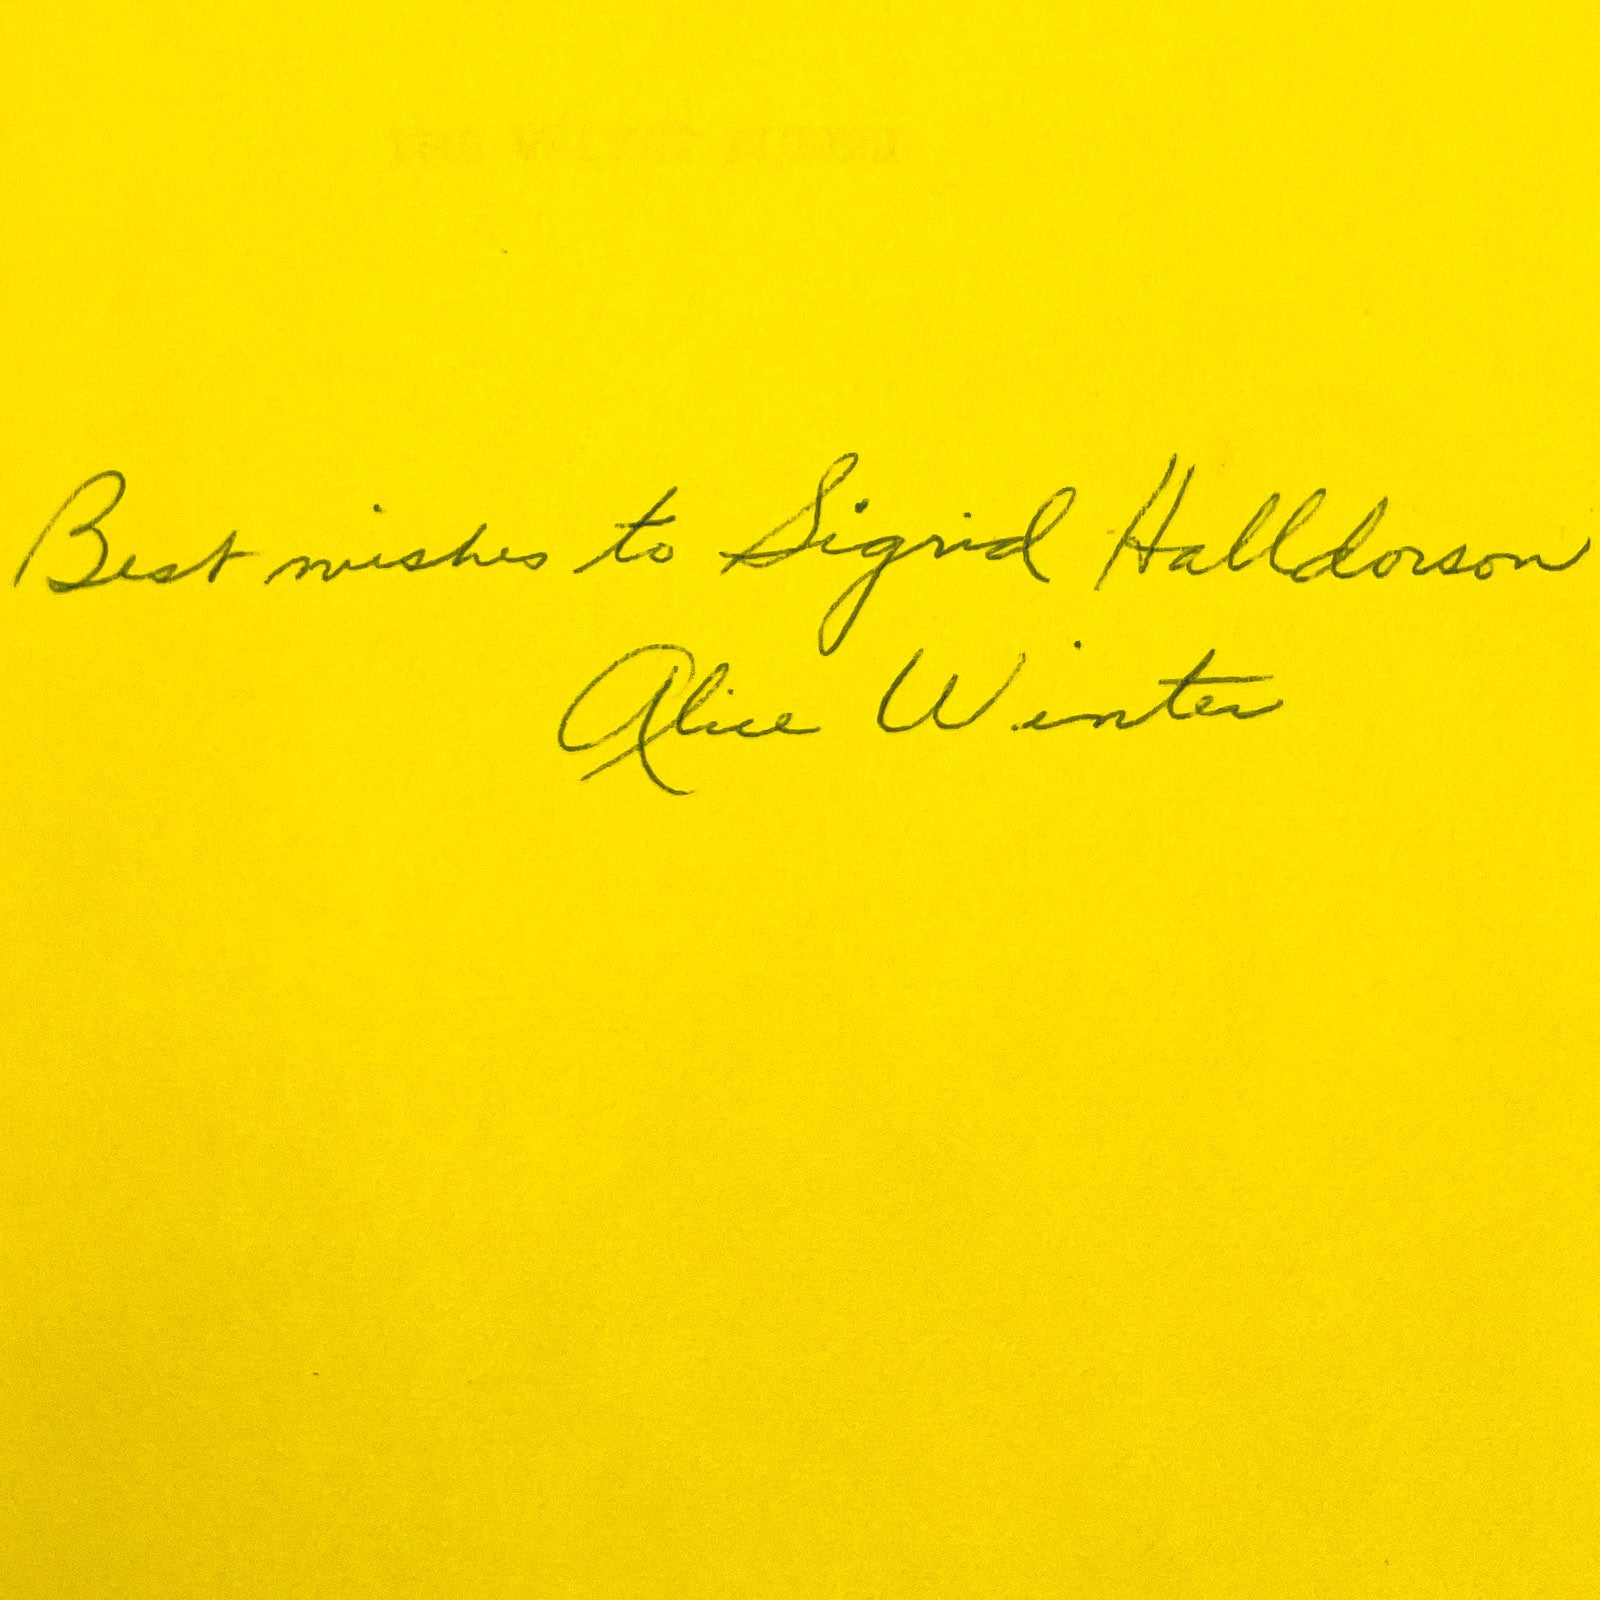 Best wishes to Sigrid Halldorson
Alice Winter